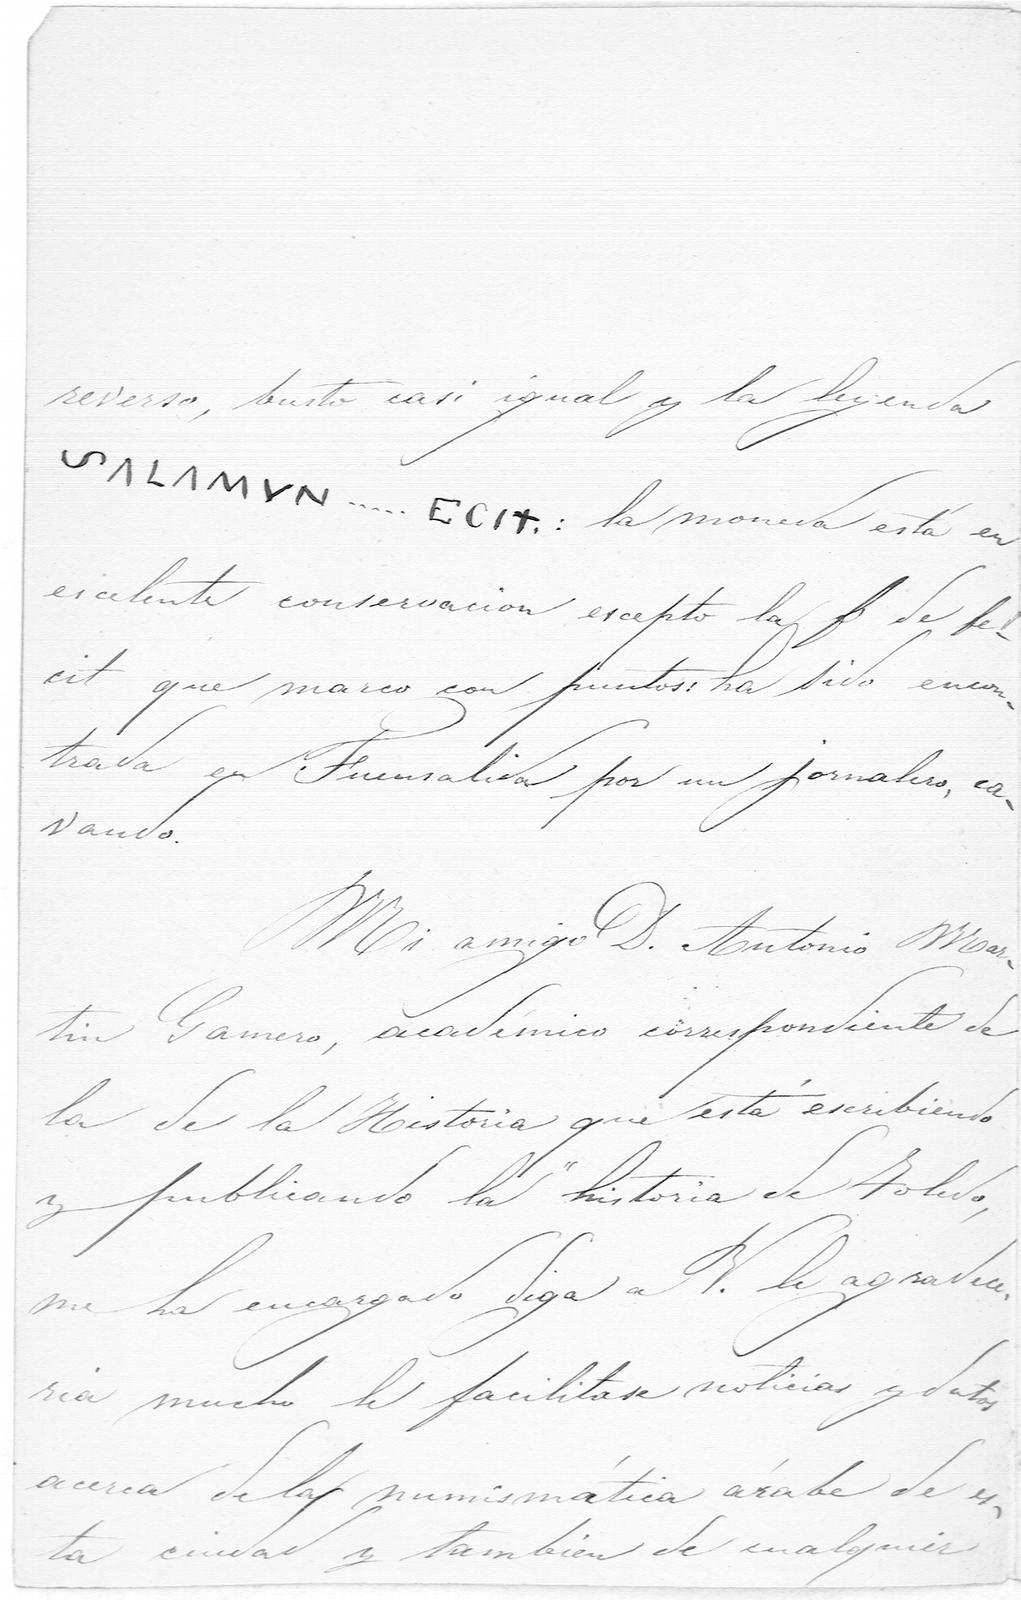 reverso, busto casi igual y la leyenda
SALAMVN ..... ECIT.: la moneda está en
escelente conservacion escepto la f de fe-
cit que marco con puntos: ha sido encon-
trada en Fuensalida por un jornalero, ca-
vando.
Mi amigo D. Antonio Mar-
tin Gamero, académico correspondiente de
la de la Historia que está escribiendo
y publicando la "historia de Toledo,
me ha encargado diga a V. le agradece-
ria mucho le facilitase noticias y datos
acerca de la numismática árabe de es-
ta ciudad y tambien de cualquier